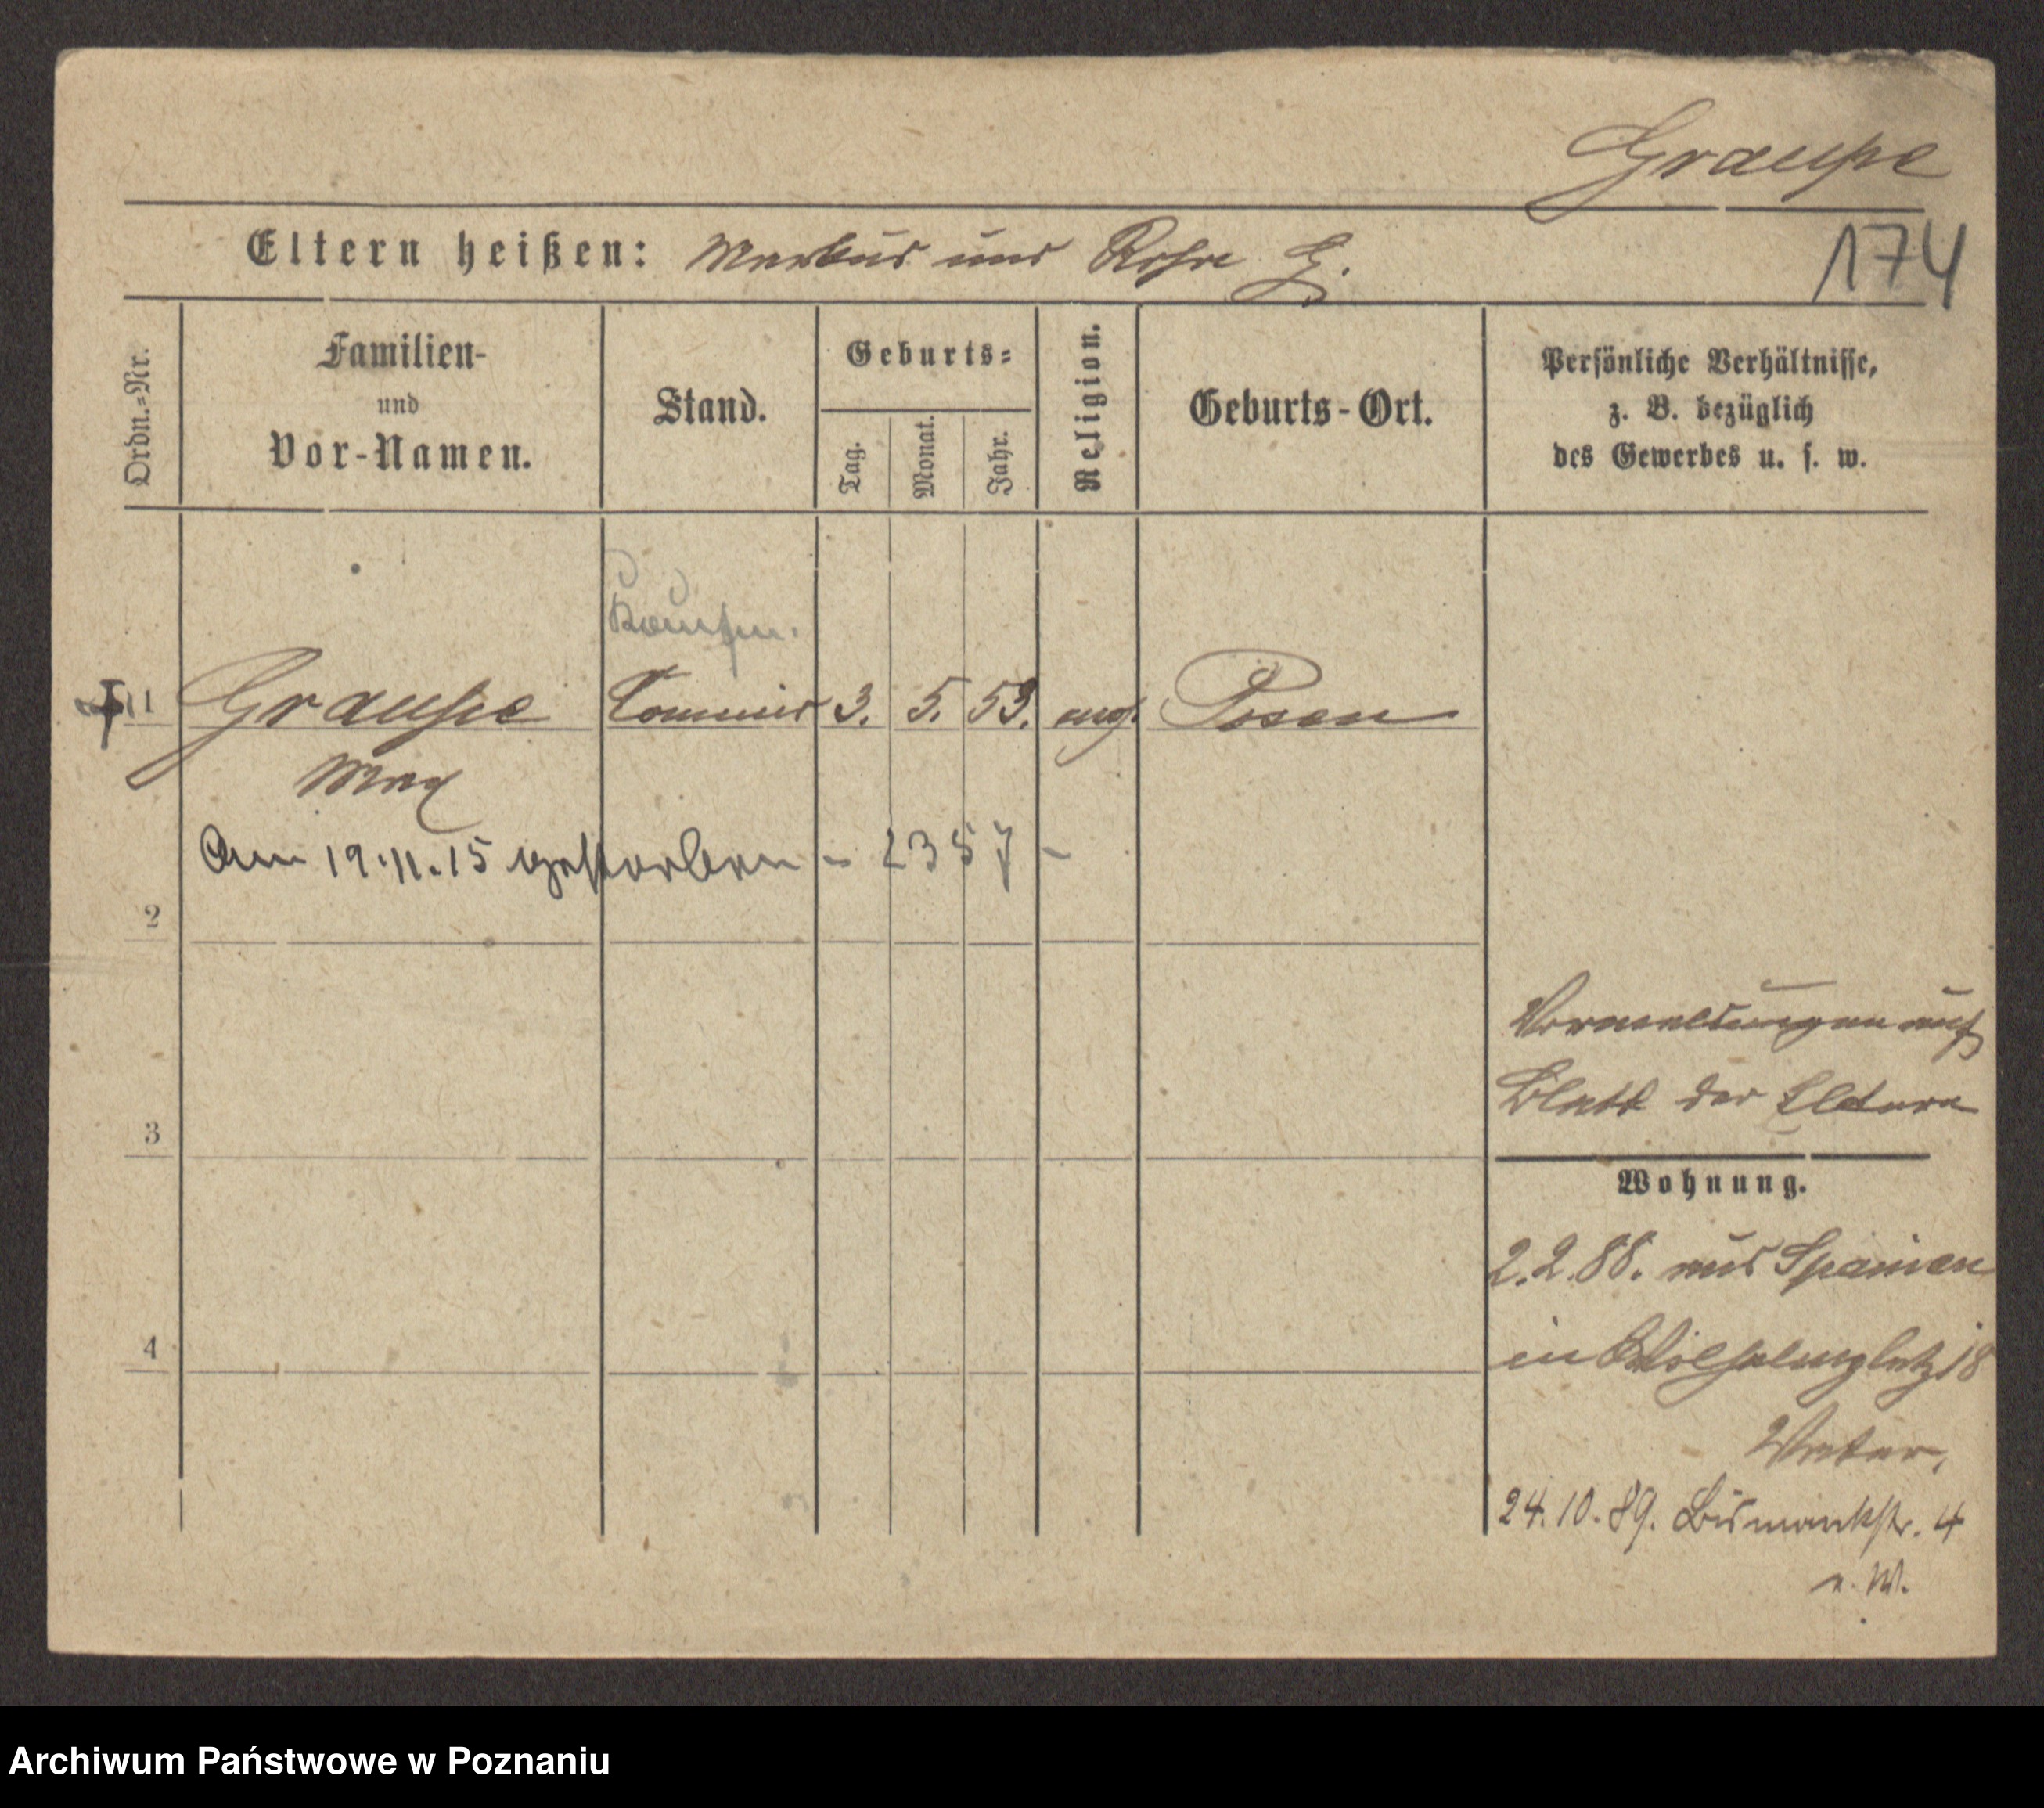 Graupe
Eltern heißen: Markus und Rosa G.
174
Ordn.-Nr.
Familien-
und
Vor-Namen.
Stand.
Geburts-
Tag.
Monat.
Jahr.
Religion.
Geburts-Ort.
Persönliche Verhältnisse,
z. B. bezüglich
des Gewerbes u. s. w.
Kaufm.
1 Graupe Commis 3. 5. 53. mos. Posen
Max
Am 19.11.15 gestorben - 2357 -
2
Vormeldungen auf
Blatt der Eltern
3
Wohnung.
2.2.88. aus Spanien
in Wilhelmsplatz 18
4
Vater.
24.10.89. Bismarckstr. 4
n. W.
Archiwum Państwowe w Poznaniu